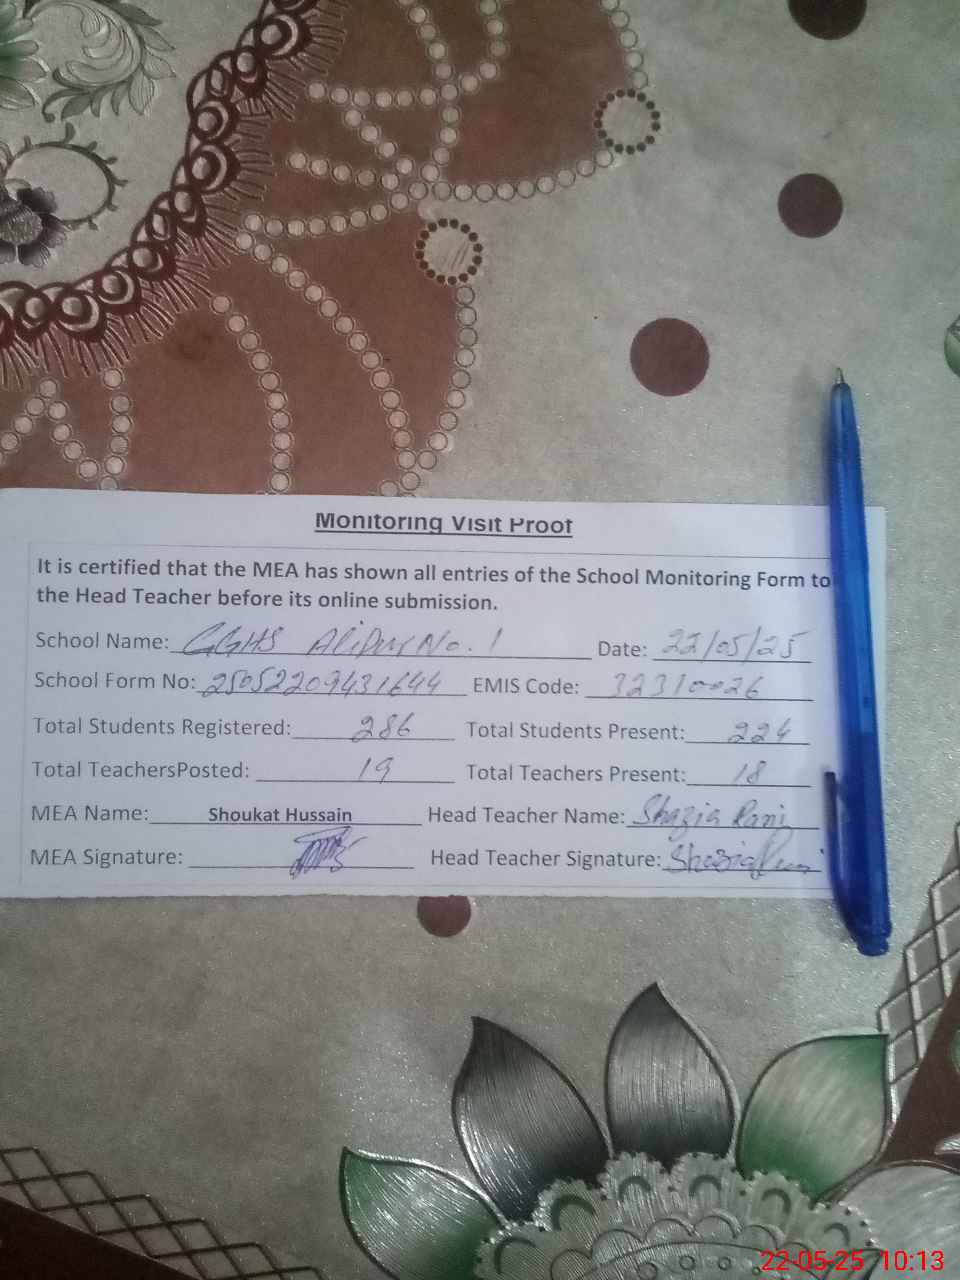 Monitoring Visit Proof
It is certified that the MEA has shown all entries of the School Monitoring Form to
the Head Teacher before its online submission.
School Name: GGHS AliPur No. 1 Date: 22/05/25
School Form No: 25052209431644 EMIS Code: 32310026
Total Students Registered: 286 Total Students Present: 224
Total TeachersPosted: 19 Total Teachers Present: 18
MEA Name: Shoukat Hussain Head Teacher Name: Shazia Rani
MEA Signature: Head Teacher Signature: Shazia Rani
22-05-25 10:13